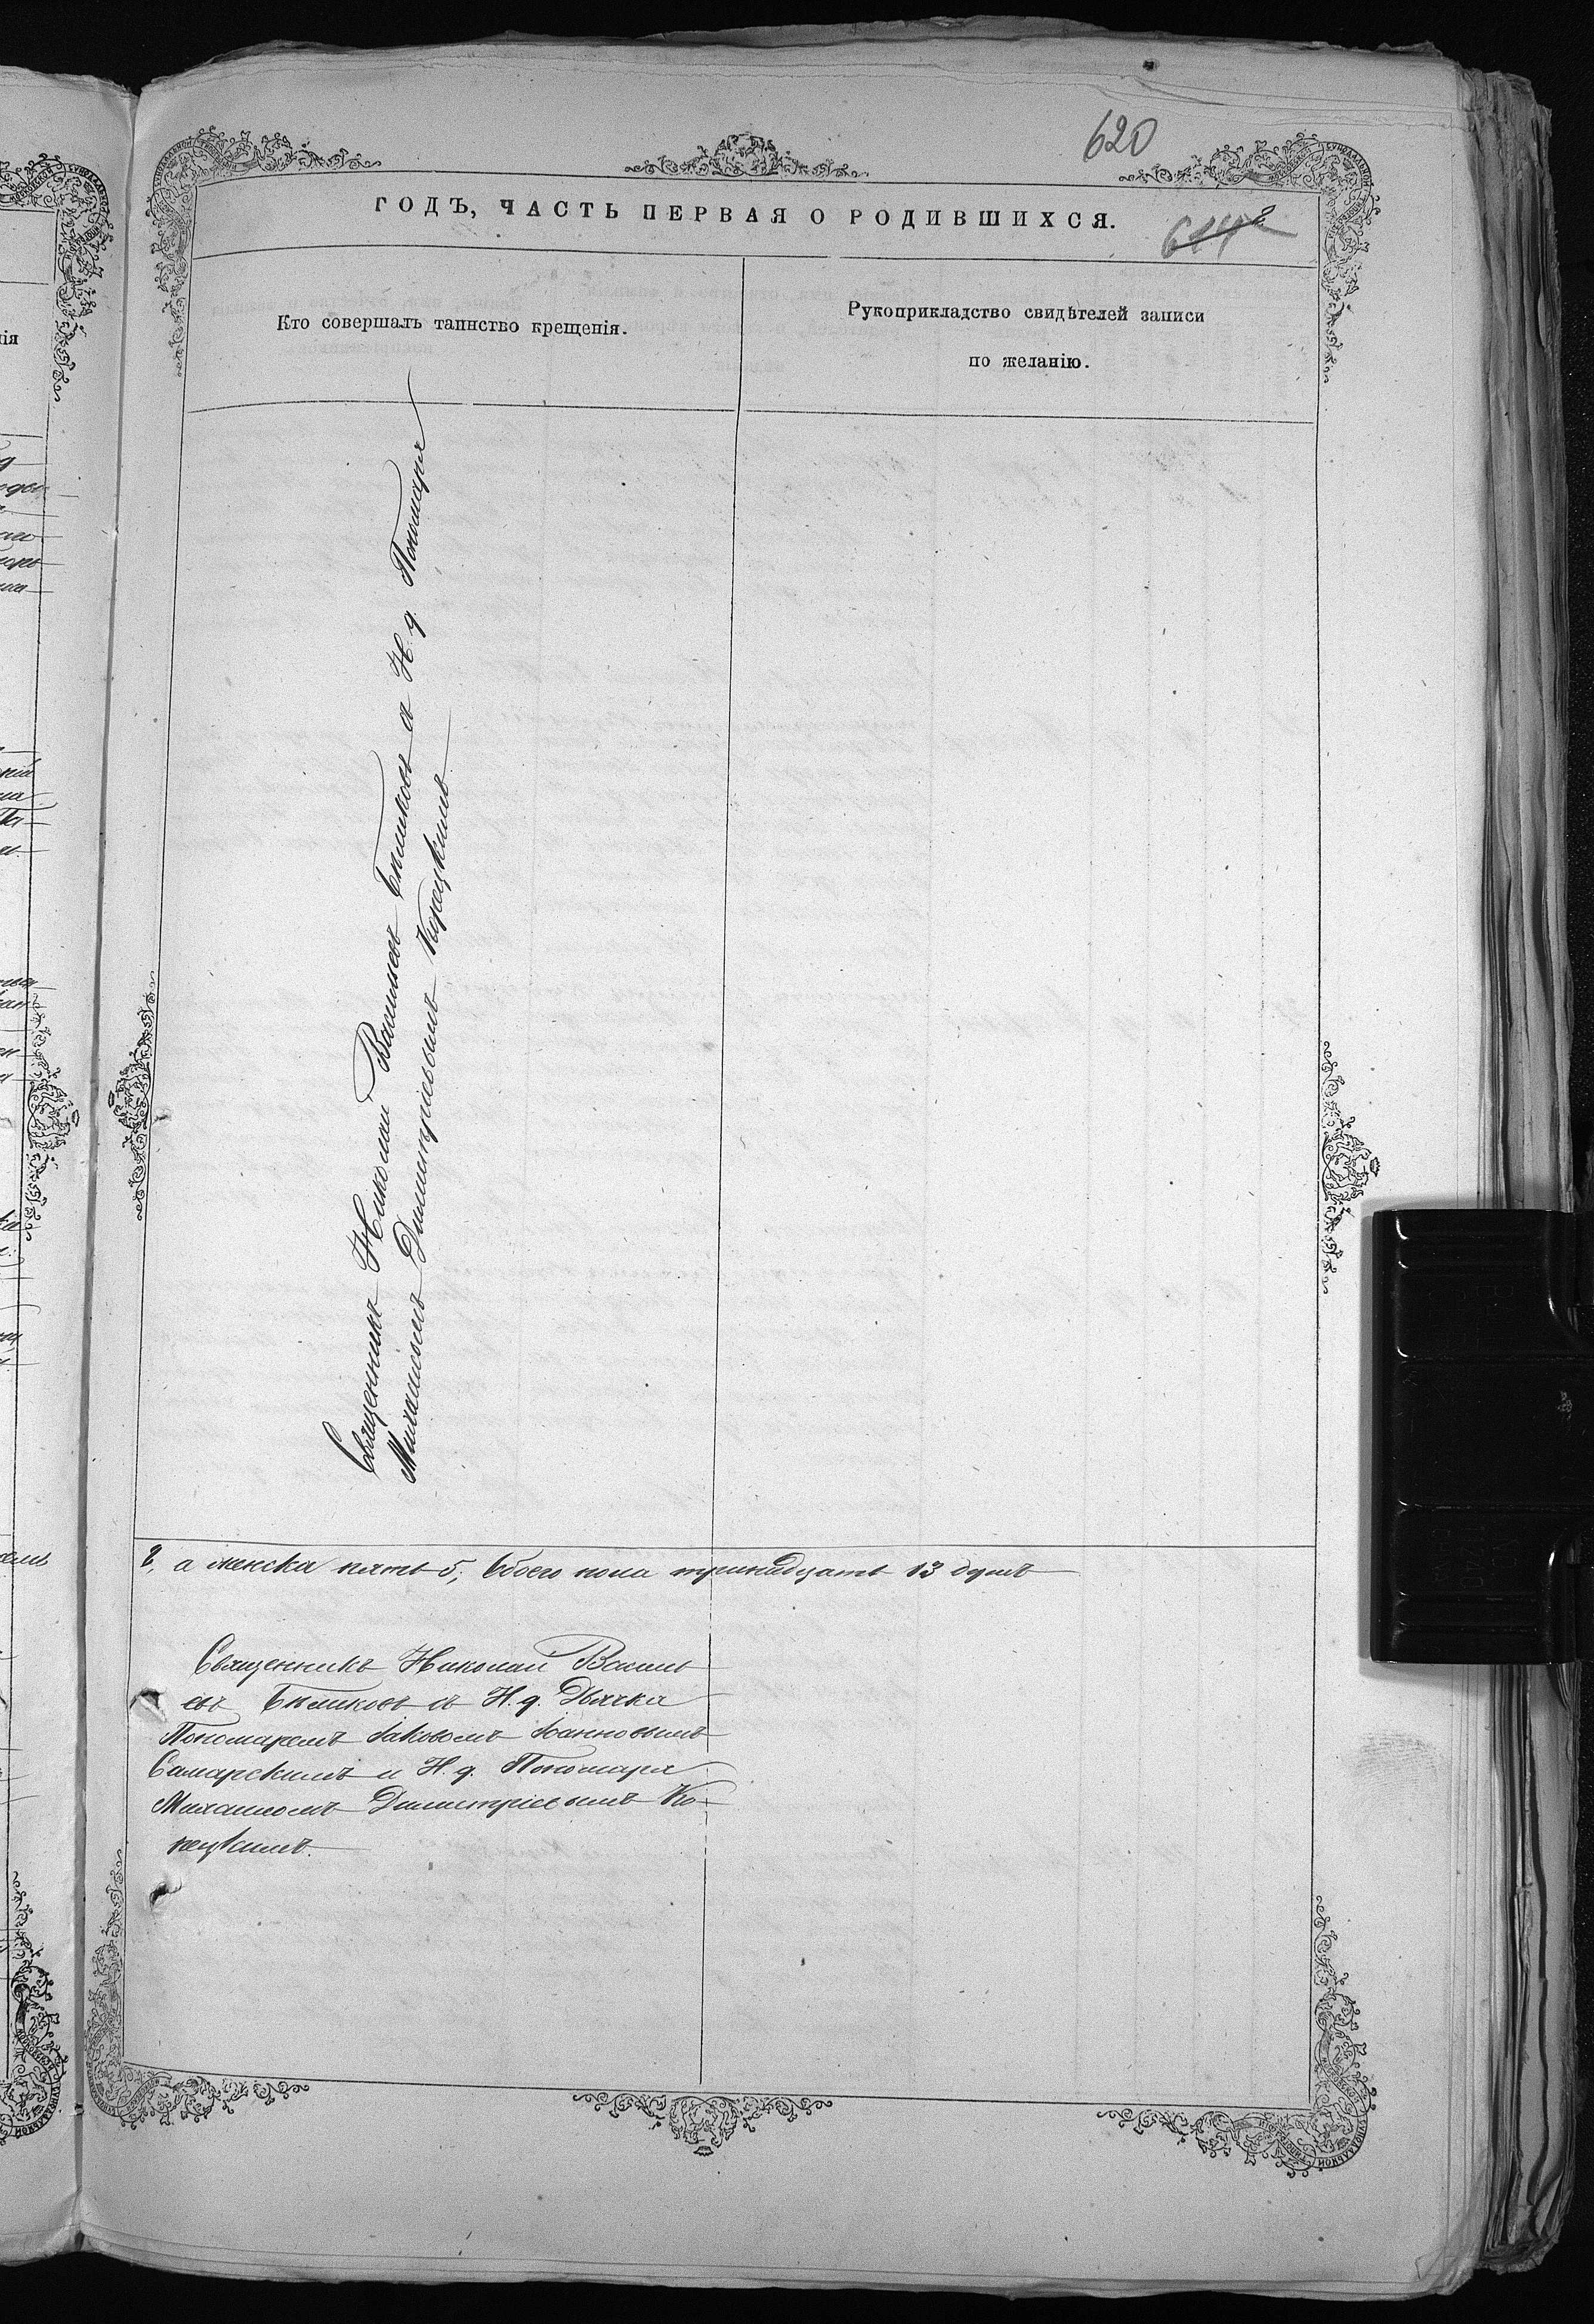 620
ГОДЪ, ЧАСТЬ ПЕРВАЯ О РОДИВШИХСЯ.
Кто совершалъ таинство крещенія.
Рукоприкладство свидѣтелей записи
по желанію.
Священникъ Николай Васильевъ Бѣликовъ съ Н. д. Пономаря
Михаиломъ Димитріевымъ
8, а женска пять 5, Обоего пола тринадцать 13 душъ
Священникъ Николай Василь
евъ Бѣликовъ съ Н. д. Дьячка
Пономаремъ Іаковомъ Іоанновымъ
Самарскимъ и Н. д. Пономаря
Михаиломъ Димитріевымъ